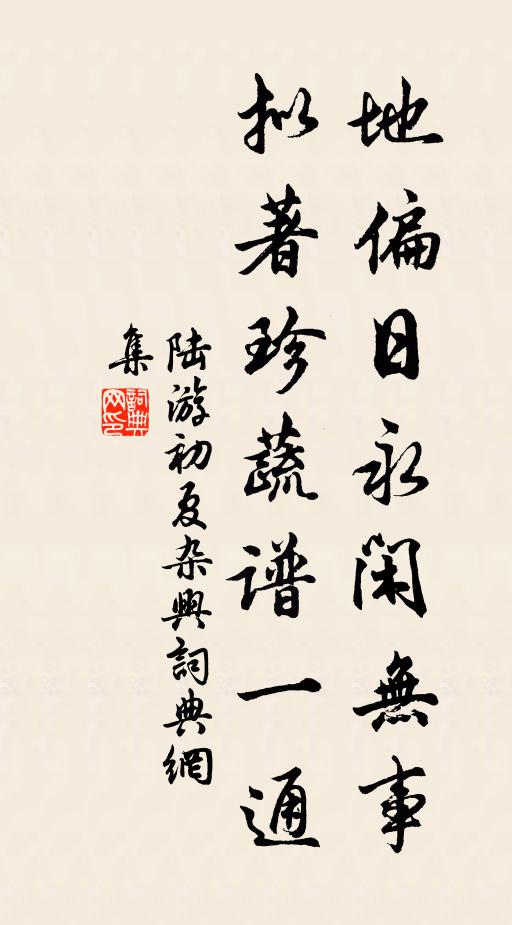 地偏日永闲無事
拟著珍蔬谱一通
陆游初夏杂興詞典網
集
詞典
网印